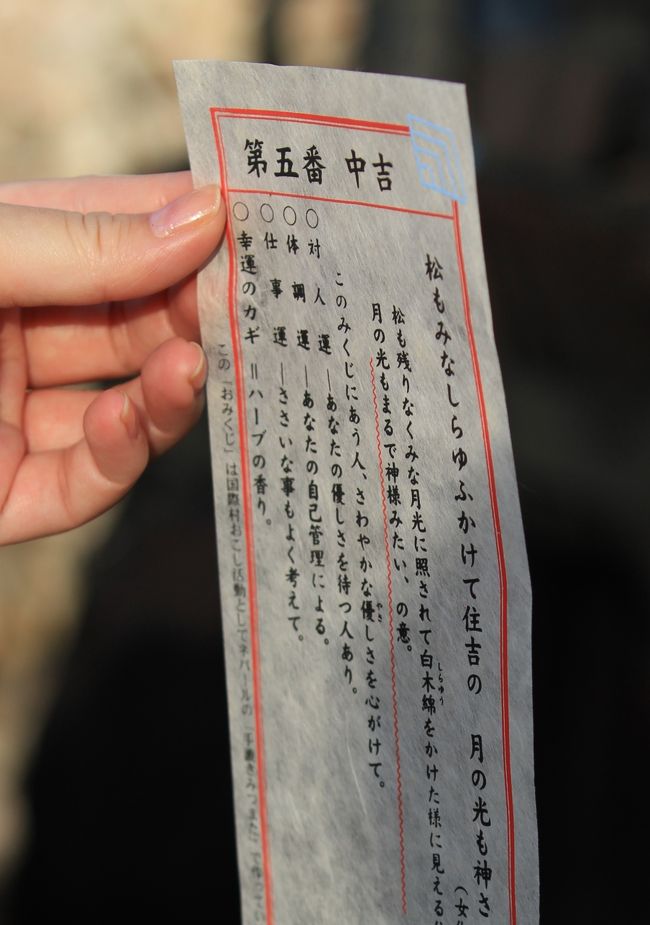 第五番 中吉
松もみなしらゆふかけて住吉の 月の光も神さ
(女
松も残りなくみな月光に照されて白木綿をかけた様に見える
しらゆう
月の光もまるで神様みたい、の意。
このみくじにあう人、さわやかな優しさを心がけて。
やさ
○対人運―あなたの優しさを待つ人あり。
○体調運―あなたの自己管理による。
○仕事運―ささいな事もよく考えて。
○幸運のカギ=ハーブの香り。
この「おみくじ」は国際村おこし活動としてネパールの「手漉きみつまた」で作ってい